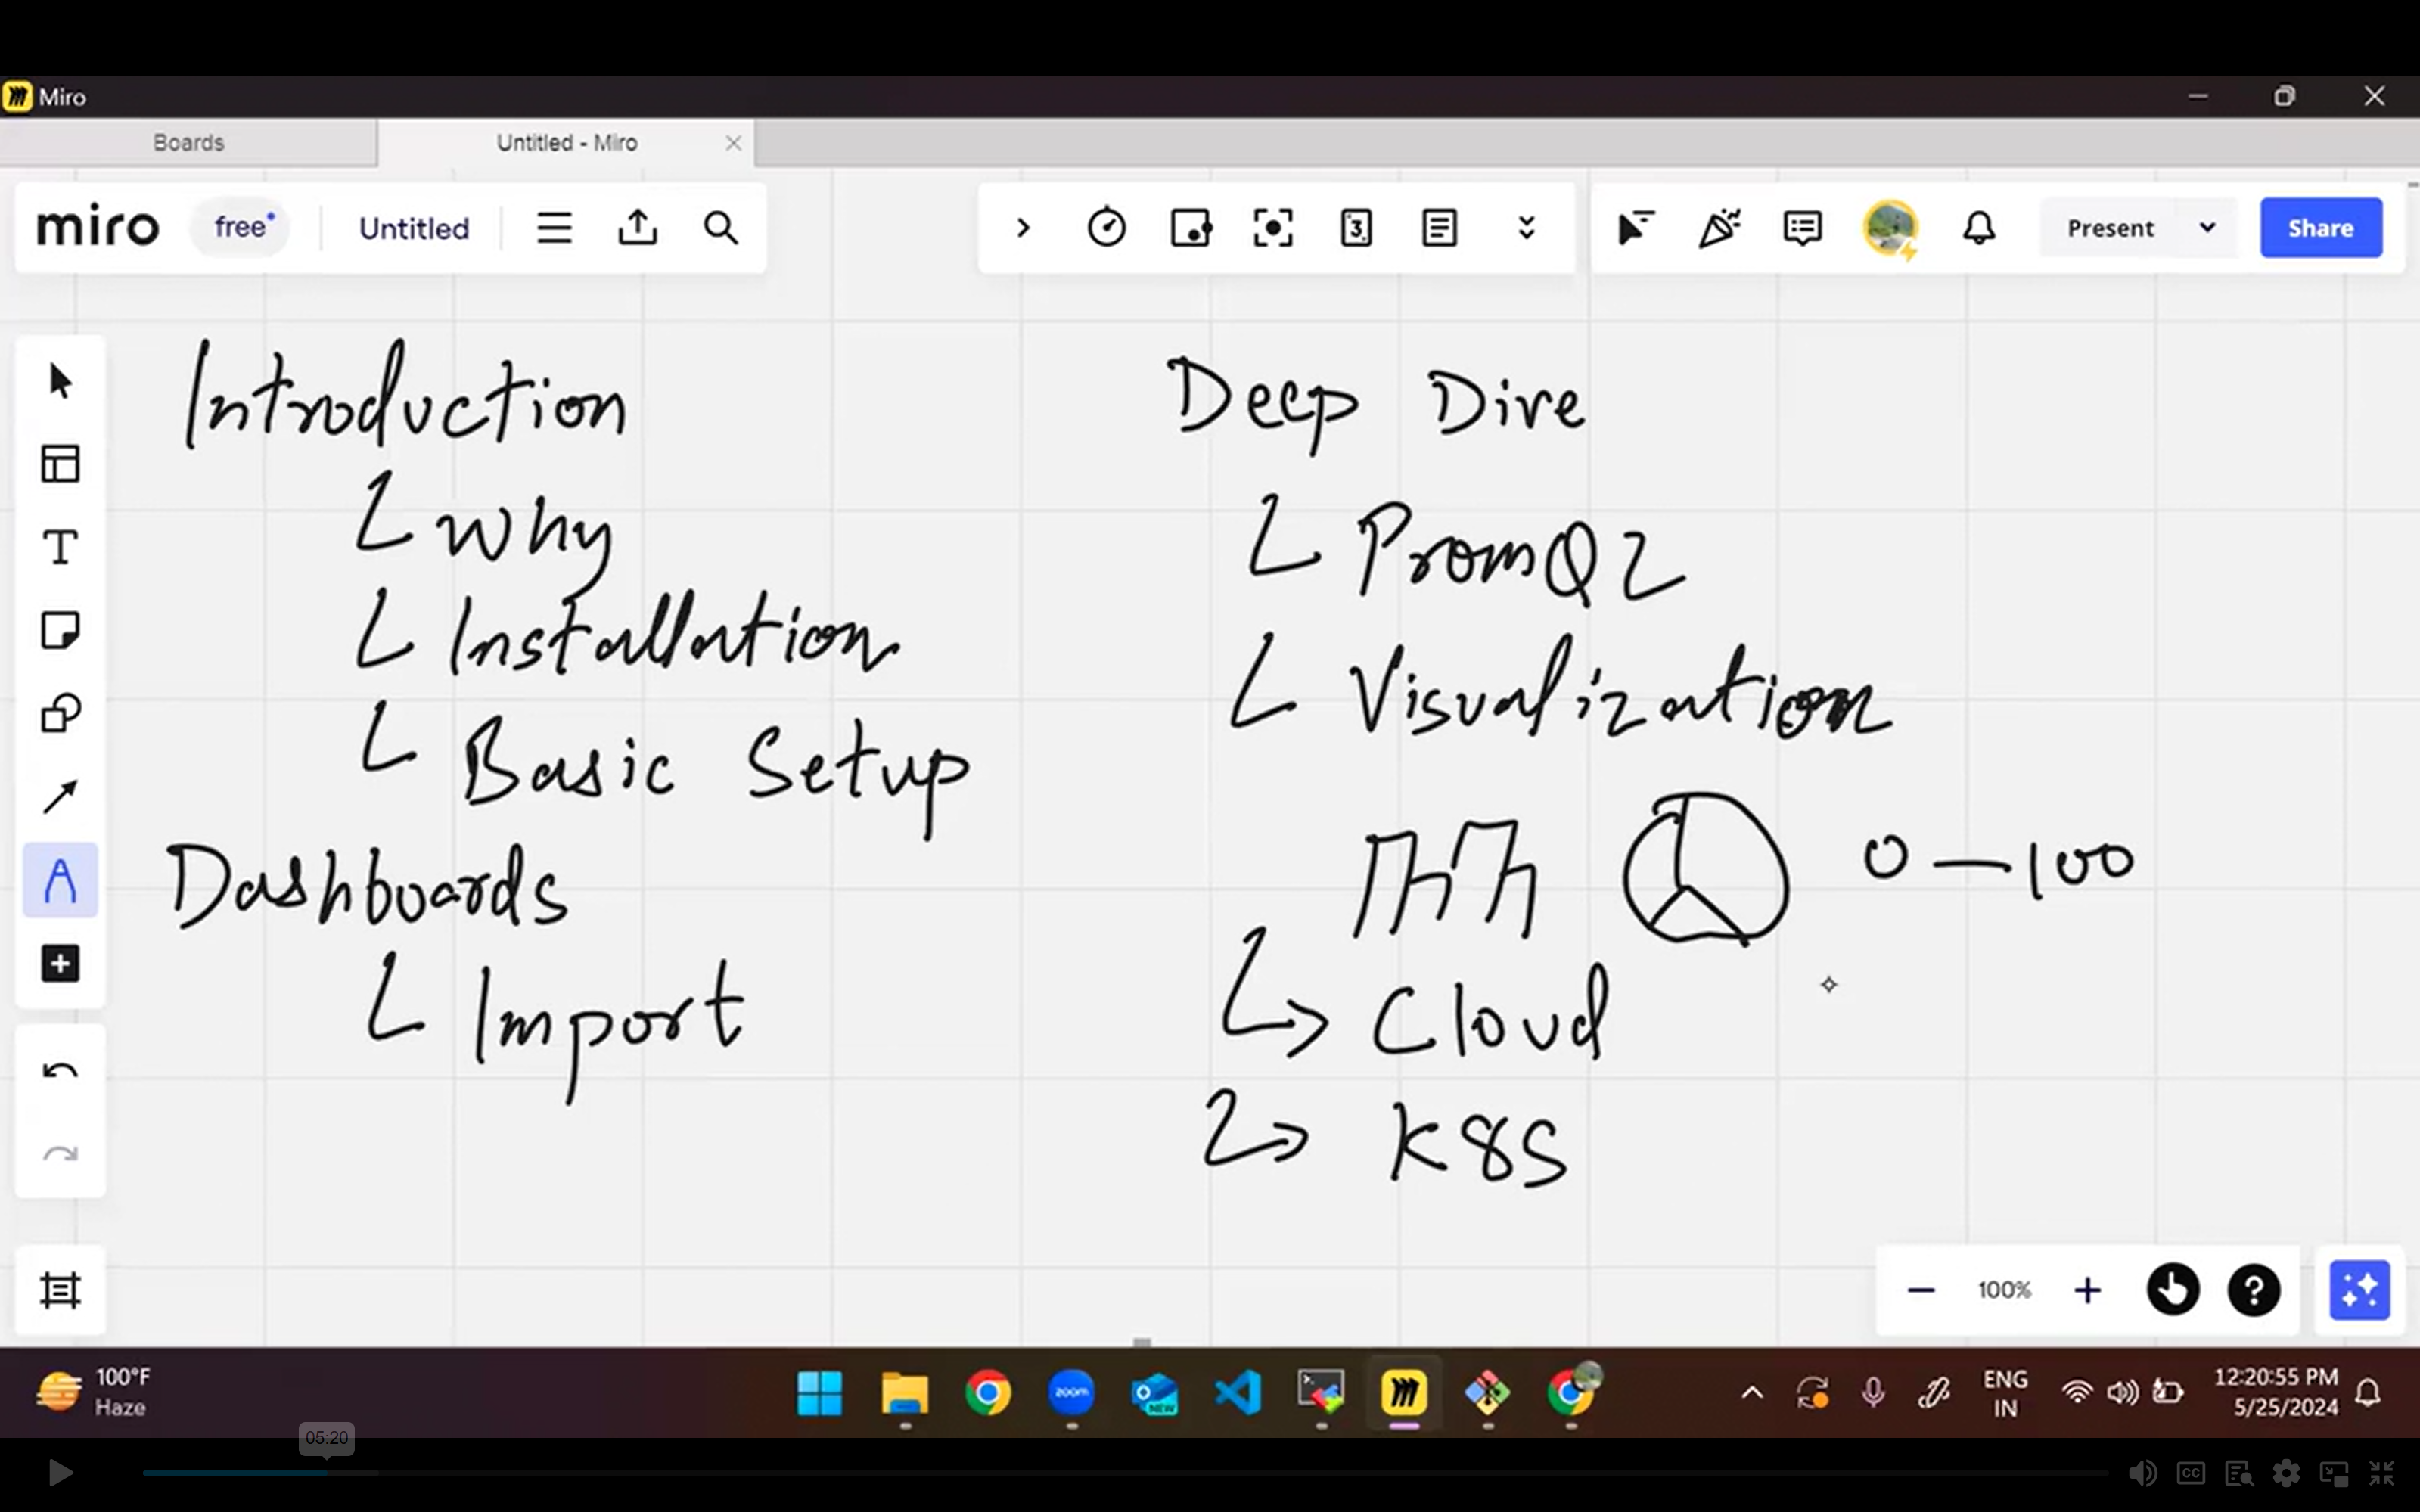 Miro
Boards
Untitled - Miro
miro
free
Untitled
3
Present
Share
Introduction
Why
Installation
Basic Setup
Dashboards
Import
Deep Dive
PromQL
Visualization
0 — 100
Cloud
K8S
100%
?
100°F
Haze
zoom
NEW
ENG
IN
12:20:55 PM
5/25/2024
05:20
CC